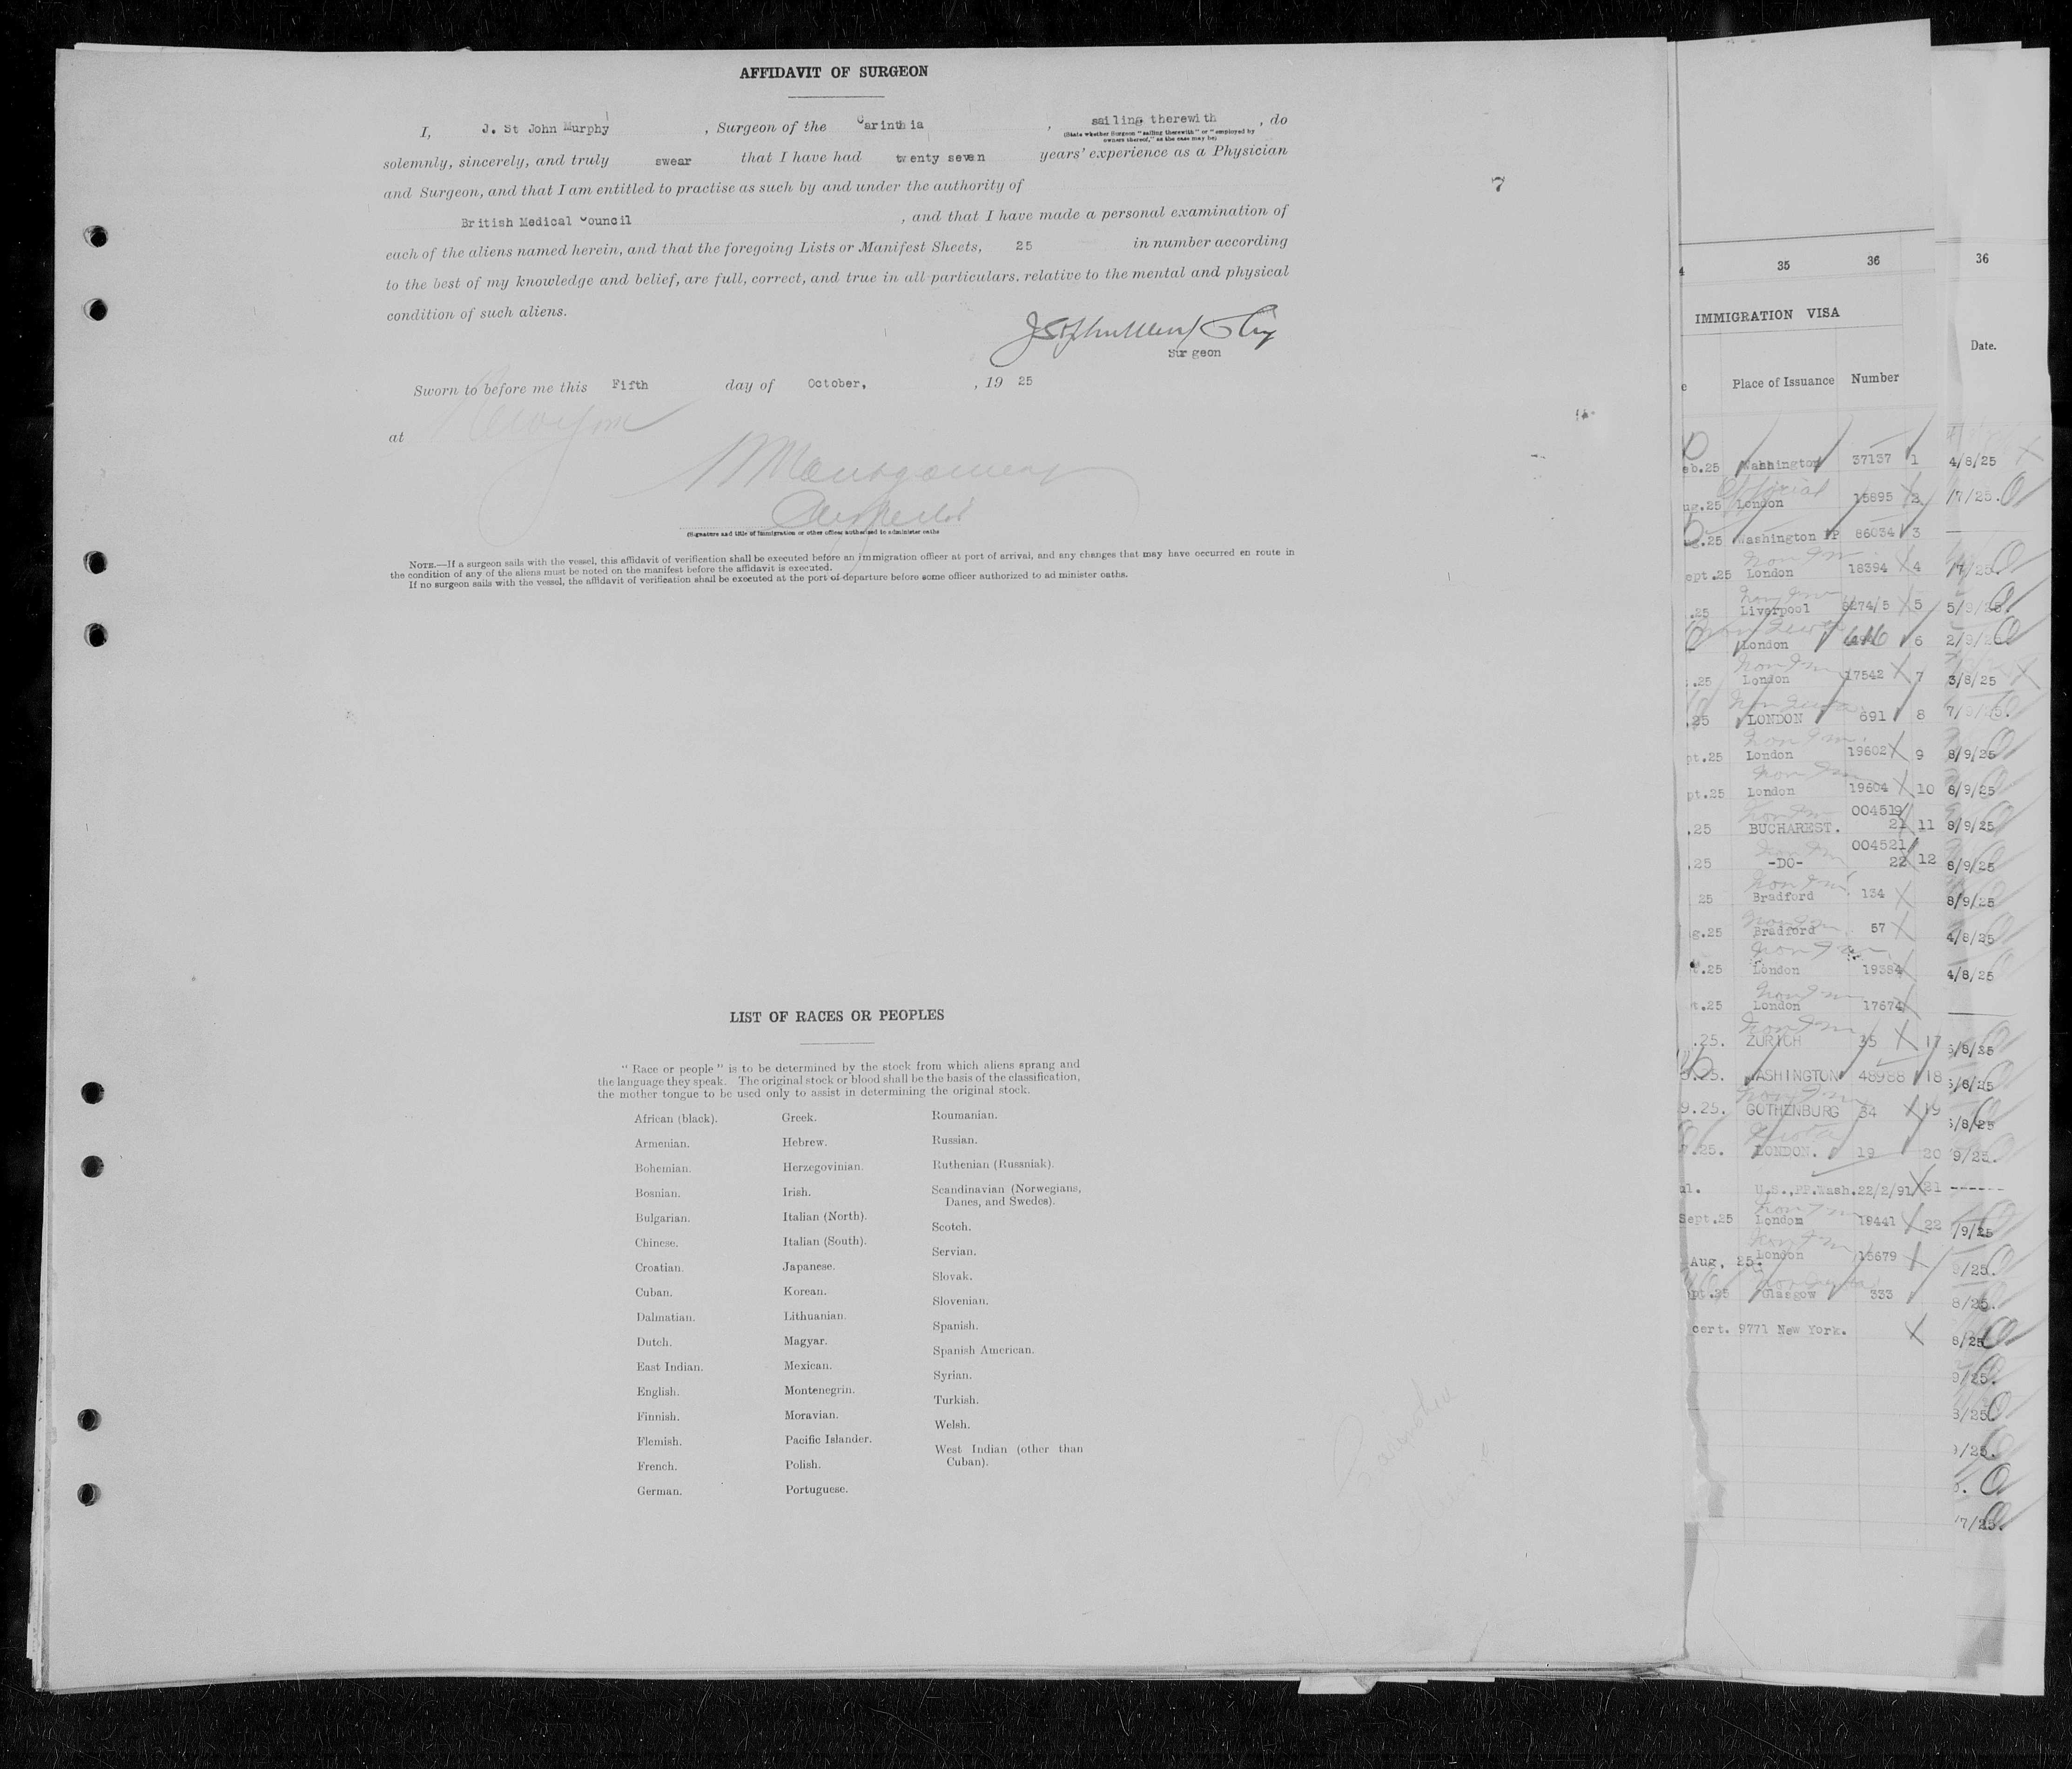 AFFIDAVIT OF SURGEON
I, J. St John Murphy, Surgeon of the Carinthia, sailing therewith, do
(State whether Surgeon "sailing therewith" or "employed by
owners thereof," as the case may be)
solemnly, sincerely, and truly swear that I have had twenty seven years' experience as a Physician
and Surgeon, and that I am entitled to practise as such by and under the authority of
7
British Medical Council, and that I have made a personal examination of
each of the aliens named herein, and that the foregoing Lists or Manifest Sheets, 25 in number according
to the best of my knowledge and belief, are full, correct, and true in all particulars, relative to the mental and physical
condition of such aliens.
Surgeon
Sworn to before me this Fifth day of October, , 19 25
at
Montgomery
Inspector
(Signature and title of immigration or other officer authorized to administer oaths
NOTE.—If a surgeon sails with the vessel, this affidavit of verification shall be executed before an immigration officer at port of arrival, and any changes that may have occurred en route in
the condition of any of the aliens must be noted on the manifest before the affidavit is executed.
If no surgeon sails with the vessel, the affidavit of verification shall be executed at the port of departure before some officer authorized to ad minister oaths.
LIST OF RACES OR PEOPLES
"Race or people" is to be determined by the stock from which aliens sprang and
the language they speak. The original stock or blood shall be the basis of the classification,
the mother tongue to be used only to assist in determining the original stock.
African (black).
Armenian.
Bohemian.
Bosnian.
Bulgarian.
Chinese.
Croatian.
Cuban.
Dalmatian.
Dutch.
East Indian.
English.
Finnish.
Flemish.
French.
German.
Greek.
Hebrew.
Herzegovinian.
Irish.
Italian (North).
Italian (South).
Japanese.
Korean.
Lithuanian.
Magyar.
Mexican.
Montenegrin.
Moravian.
Pacific Islander.
Polish.
Portuguese.
Roumanian.
Russian.
Ruthenian (Russniak).
Scandinavian (Norwegians,
Danes, and Swedes).
Scotch.
Servian.
Slovak.
Slovenian.
Spanish.
Spanish American.
Syrian.
Turkish.
Welsh.
West Indian (other than
Cuban).
35 36
IMMIGRATION VISA
Place of Issuance Number
eb.25 Washington 37137 1
ug.25 London 15895 2
g.25 Washington PP 86034 3
ept.25 London 18394 4
.25 Liverpool 8274/5 5
London 6
.25 London 17542 7
.25 LONDON 691 8
pt.25 London 19602 9
pt.25 London 19604 10
004519/
.25 BUCHAREST. 21 11
004521/
.25 -DO- 22 12
25 Bradford 134
g.25 Bradford 57
t.25 London 19384
t.25 London 17674
.25. ZURICH 35 17
.25. WASHINGTON 48988 18
9.25. GOTHENBURG 34 19
.25. LONDON. 19 20
al. U.S.,PP.Wash.22/2/91 21
Sept.25 London 19441 22
Aug, 25. London 15679
pt.25 Glasgow 333
cert. 9771 New York.
36
Date.
4/8/25
/7/25.
5/9/25.
3/8/25
8/9/25
6/9/25
8/9/25
8/9/25
8/9/25
4/8/25
4/8/25
5/8/25
5/8/25
5/8/25
9/25.
------
/9/25
9/25.
8/25.
8/25
9/25.
8/25.
/25.
/7/25.